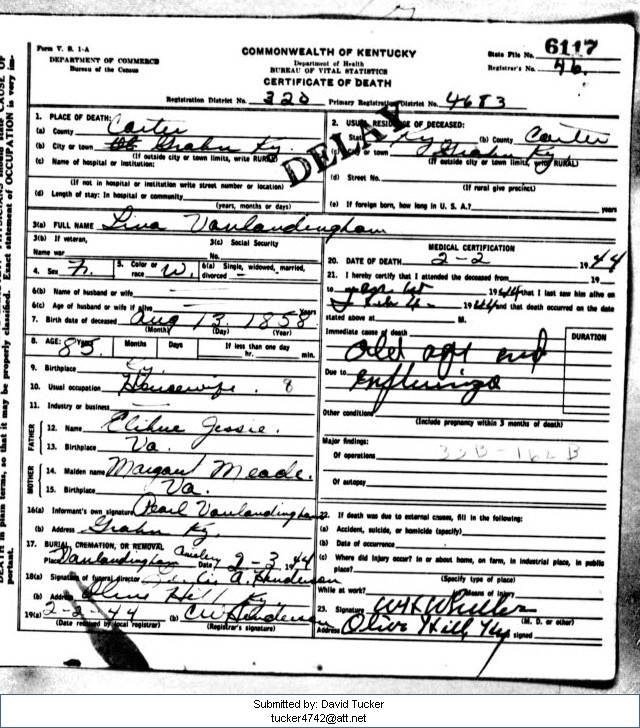 Form V. S. 1-A
DEPARTMENT OF COMMERCE
Bureau of the Census
COMMONWEALTH OF KENTUCKY
Department of Health
BUREAU OF VITAL STATISTICS
CERTIFICATE OF DEATH
State File No. 6117
Registrar's No. 46.
Registration District No. 320 Primary Registration District No. 4683
DELAY
1. PLACE OF DEATH:
(a) County Carter
(b) City or town Grahn Ky.
(If outside city or town limits, write RURAL)
(c) Name of hospital or institution:
(If not in hospital or institution write street number or location)
(d) Length of stay: In hospital or community
(years, months or days)
2. USUAL RESIDENCE OF DECEASED:
State Ky (b) County Carter
(c) City or town Grahn Ky
(If outside city or town limits, write RURAL)
(d) Street No.
(If rural give precinct)
(e) If foreign born, how long in U. S. A.? years
3(a) FULL NAME Lina Vanlandingham
3(b) If veteran, 3(c) Social Security
Name war No.
4. Sex F. 5. Color or race W. 6(a) Single, widowed, married, divorced
6(b) Name of husband or wife
6(c) Age of husband or wife if alive Years
7. Birth date of deceased Aug 13, 1858
(Month) (Day) (Year)
8. AGE: 85 Months Days If less than one day
hr. min.
9. Birthplace Ky.
10. Usual occupation Housewife. 8
11. Industry or business
FATHER
12. Name Elihue Jessie.
13. Birthplace Va.
MOTHER
14. Maiden name Margart Meade.
15. Birthplace Va.
16(a) Informant's own signature Pearl Vanlandingham
(b) Address Grahn Ky.
17. BURIAL, CREMATION, OR REMOVAL
Place Vanlandingham Date 2-3, 1944
18(a) Signature of funeral director A. Henderson
(b) Address Olive Hill Ky
19(a) 2-2-44 (b) CW Henderson
(Date received by local registrar) (Registrar's signature)
MEDICAL CERTIFICATION
20. DATE OF DEATH 2-2 1944
21. I hereby certify that I attended the deceased from 19
to 1944 that I last saw him alive on
1944 and that death occurred on the date
stated above at M.
Immediate cause of death DURATION
old age and
Due to enfluinza
Other conditions
(Include pregnancy within 3 months of death)
Major findings:
Of operations 33B-162B
Of autopsy
22. If death was due to external causes, fill in the following:
(a) Accident, suicide, or homicide (specify)
(b) Date of occurrence
(c) Where did injury occur? In or about home, on farm, in industrial place, in public
place?
(Specify type of place)
While at work? Means of injury
23. Signature
(M. D. or other)
Address Olive Hill, Ky signed
DEATH in plain terms, so that it may be properly classified. Exact statement of OCCUPATION is very im-
portant.
Submitted by: David Tucker
tucker4742@att.net